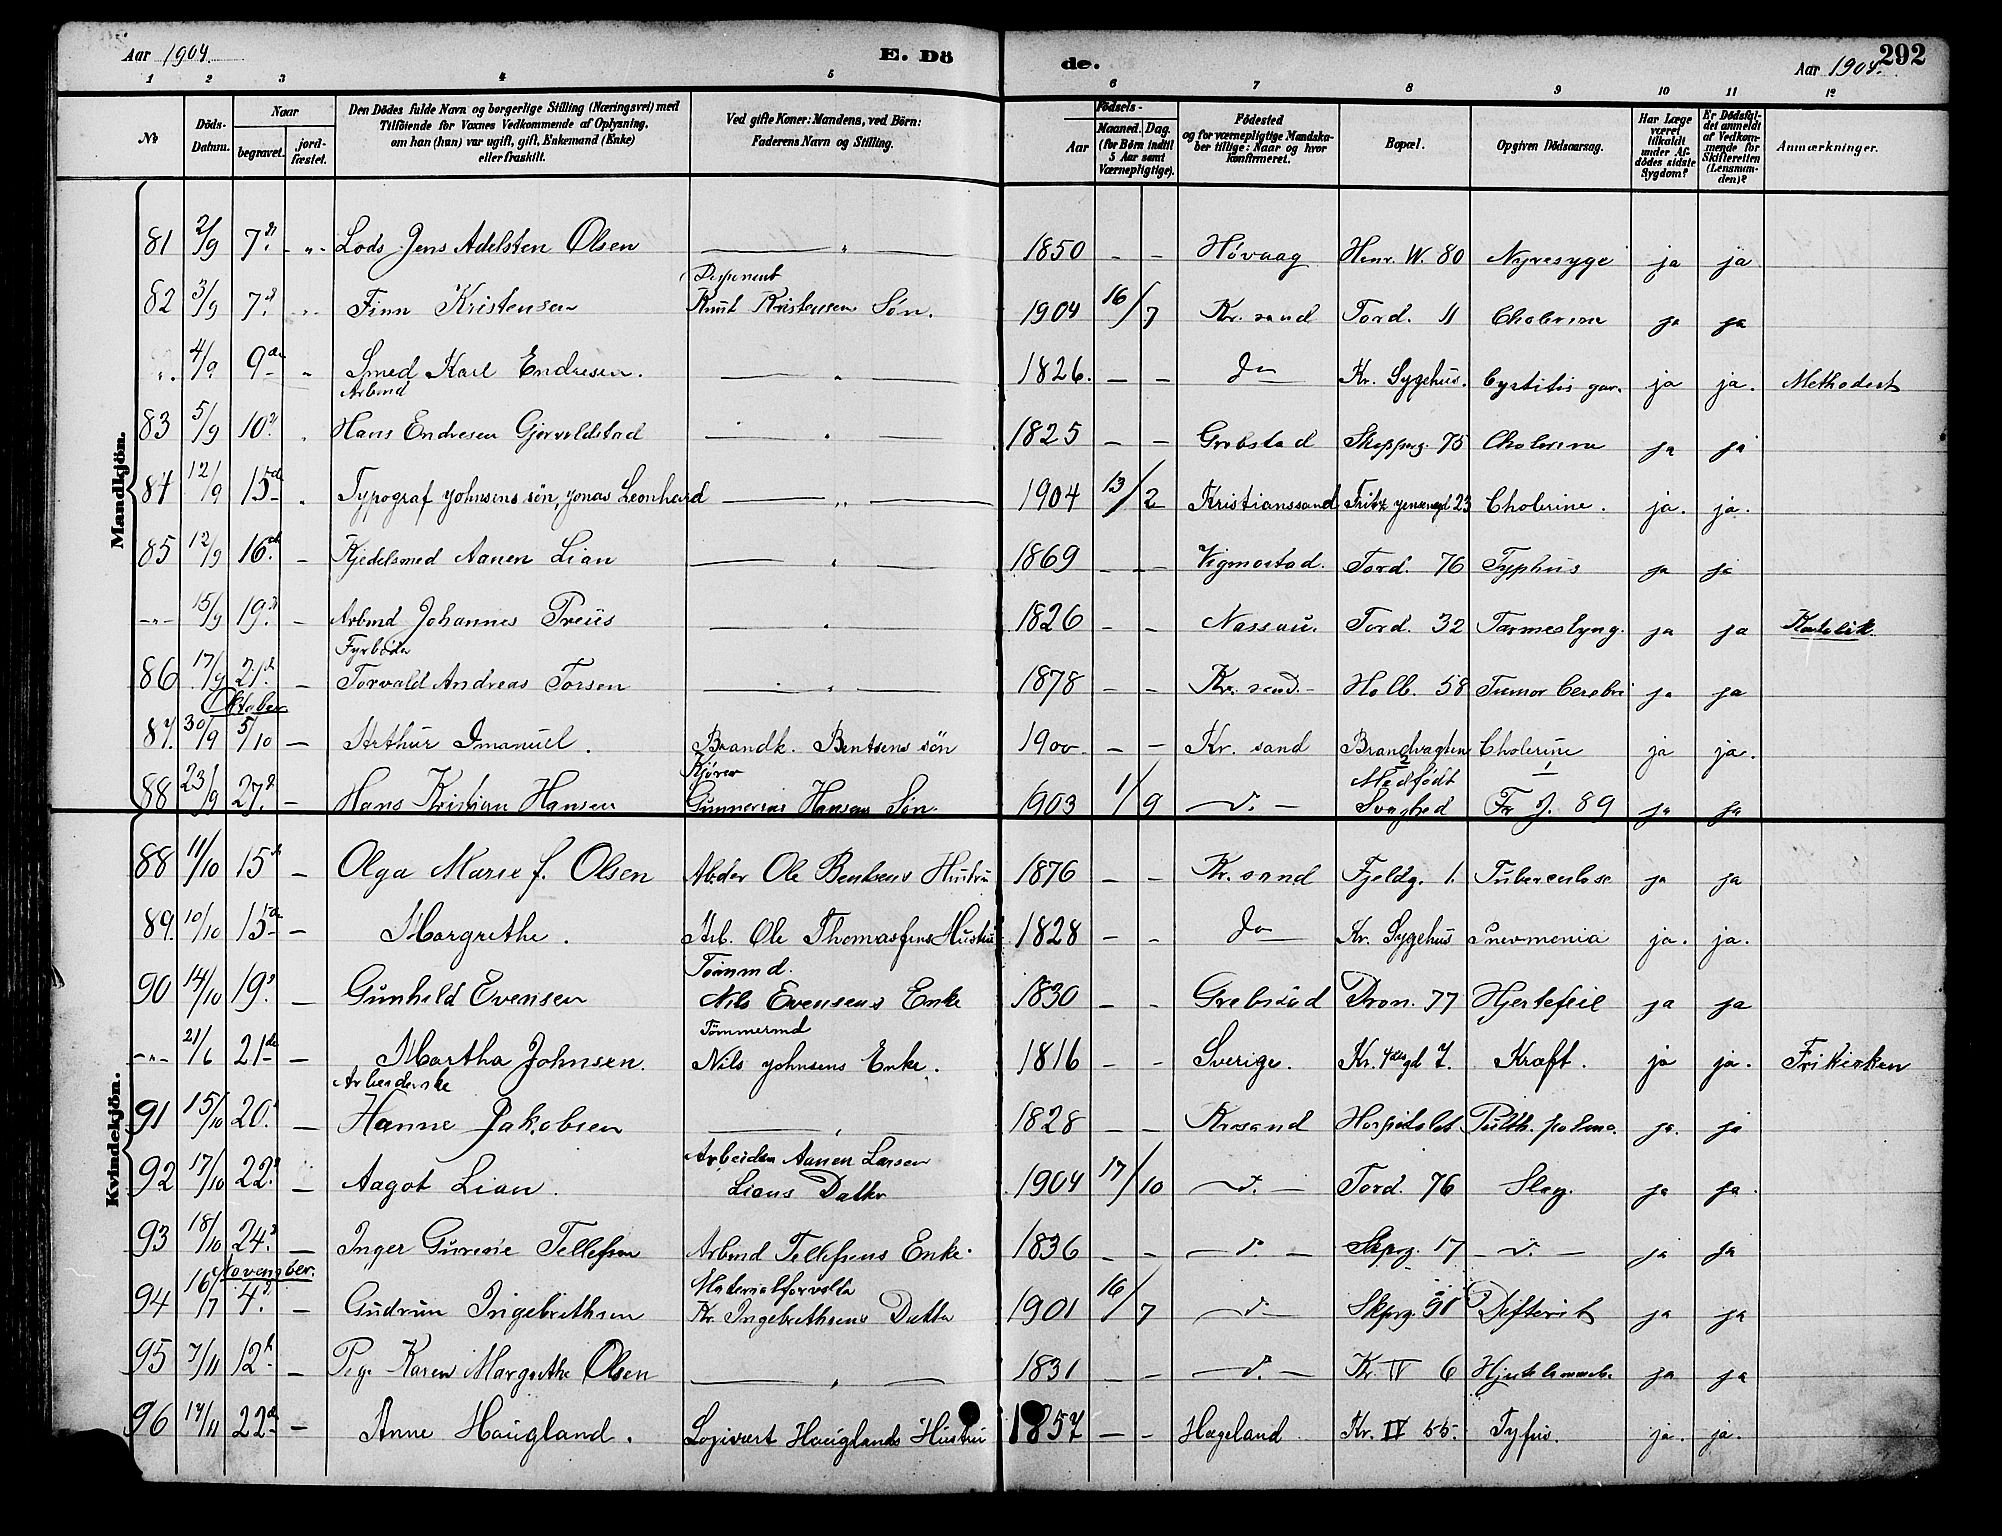 Aar 1904.
E. Dö
de.
292
Aar 1904.
1 2 3 4 5 6 7 8 9 10 11 12
№
Döds-Datum.
Naar
begravet.
jord-fæstet.
Den Dödes fulde Navn og borgerlige Stilling (Næringsvei) med Tilföiende for Voxnes Vedkommende af Oplysning, om han (hun) var ugift, gift, Enkemand (Enke) eller fraskilt.
Ved gifte Koner: Mandens, ved Börn: Faderens Navn og Stilling.
Födsels-
Aar
Maaned. Dag. (for Börn indtil 5 Aar samt Værnepligtige).
Födested og for værnepligtige Mandskaber tillige: Naar og hvor konfirmeret.
Bopæl.
Opgiven Dödsaarsag.
Har Læge været tilkaldt under Afdödes sidste Sygdom?
Er Dödsfaldet anmeldt af Vedkommende for Skifteretten (Lensmanden)?
Anmærkninger.
Mandkjön.
81 2/9 7d - " - Lods Jens Adelsten Olsen — " — 1850 - - Høvaag Henr. W. 80 Nyresyge ja ja
82 3/9 7d Finn Kristensen Disponent Knut Kristensens Søn. 1904 16/7 Kr. sand Tord. 11 Cholerine ja ja
". 4/9 9de " Smed Karl Endresen. — " — 1826. - - do Kr. Sygehus. Cystitis gan. ja ja. Methodist
83 5/9 10d Arbmd Hans Endresen Gjervoldstad — " — 1825 - - Grebstad Skipperg. 75 Cholerine ja ja
84 12/9 15de Typograf Johnsens søn, Jonas Leonhard — " — 1904 13/2 Kristianssand Fritz Jensensgd 23 Cholerine. ja. ja.
85 12/9 16d - Kjedelsmed Aanen Lian — " — 1869 - - Vigmostad. Tord. 76 Typhus ja ja
- " - 15/9 19d - Arbmd Johannes Preus — " — 1826 - - Nassau. Tord. 32 Tarmeslyng. ja ja Katolik
86 17/9 21d - Fyrbøder Torvald Andreas Torsen — " — 1878 - - Kr. sand. Holb. 58 Tumor Cerebri ja ja
Oktober
87. 30/9 5/10 — Arthur Imanuel. Brandk. Bentsens søn 1900 - - Kr. sand Brandvagten Cholerine ja ja.
88 23/9 27d - Hans Kristian Hansen Kjører Gunnerius Hansens Søn 1903 1/9 d. 2 Medfødt Svaghed 1 Fr. J. 89 ja ja
Kvindekjön.
88 11/10 15d — Olga Marie f. Olsen Ole Bentsens Hustru 1876 - - Kr. sand Fjeldg. 1. Tuberculose ja ja
89. 10/10 15de — Margrethe. Arb. Ole Thomassens Hustru 1828 - - do Kr. Sygehus Pnevmonia ja. ja.
90 14/10 19d — Gunhild Evensen Tømmd. Nils Evensens Enke 1830 - - Grebstad Dron. 77 Hjertefeil ja ja
- " - 21/6 21de — Martha Johnsen. Tömmermd Nils Johnsens Enke. 1816 - - Sverige. Kr. 4desgd 7. Kræft. ja ja. Frikirken
91 15/10 20d — Arbeiderske Hanne Jakobsen — " — 1828 - - Krsand Hospitalet. Phth. pulmo. ja. ja
92 17/10 22d — Aagot Lian. Arbeider Aanen Larsen Lians Datter 1904 17/10 d. Tord. 76 Slag. ja ja.
93 18/10 24d — Inger Gurine Tellefsen Arbmd Tellefsens Enke. 1836 - - d. Skprg. 17 d. ja ja
November.
94 16/7 4d - Gudrun Ingebrethsen Materialforvalter Kr. Ingebrethsens Datter 1901 16/7 d. Skprg. 91 Difterit ja ja
95 7/11 12te - Pige Karen Margrethe Olsen — " — 1831 - - d. Kr. IV 6 ja ja
96 17/11 22de - Anne Haugland. Logivert Hauglands Hustru 1857 - - Hægeland Kr. IV 55. Tyfus. ja. ja.